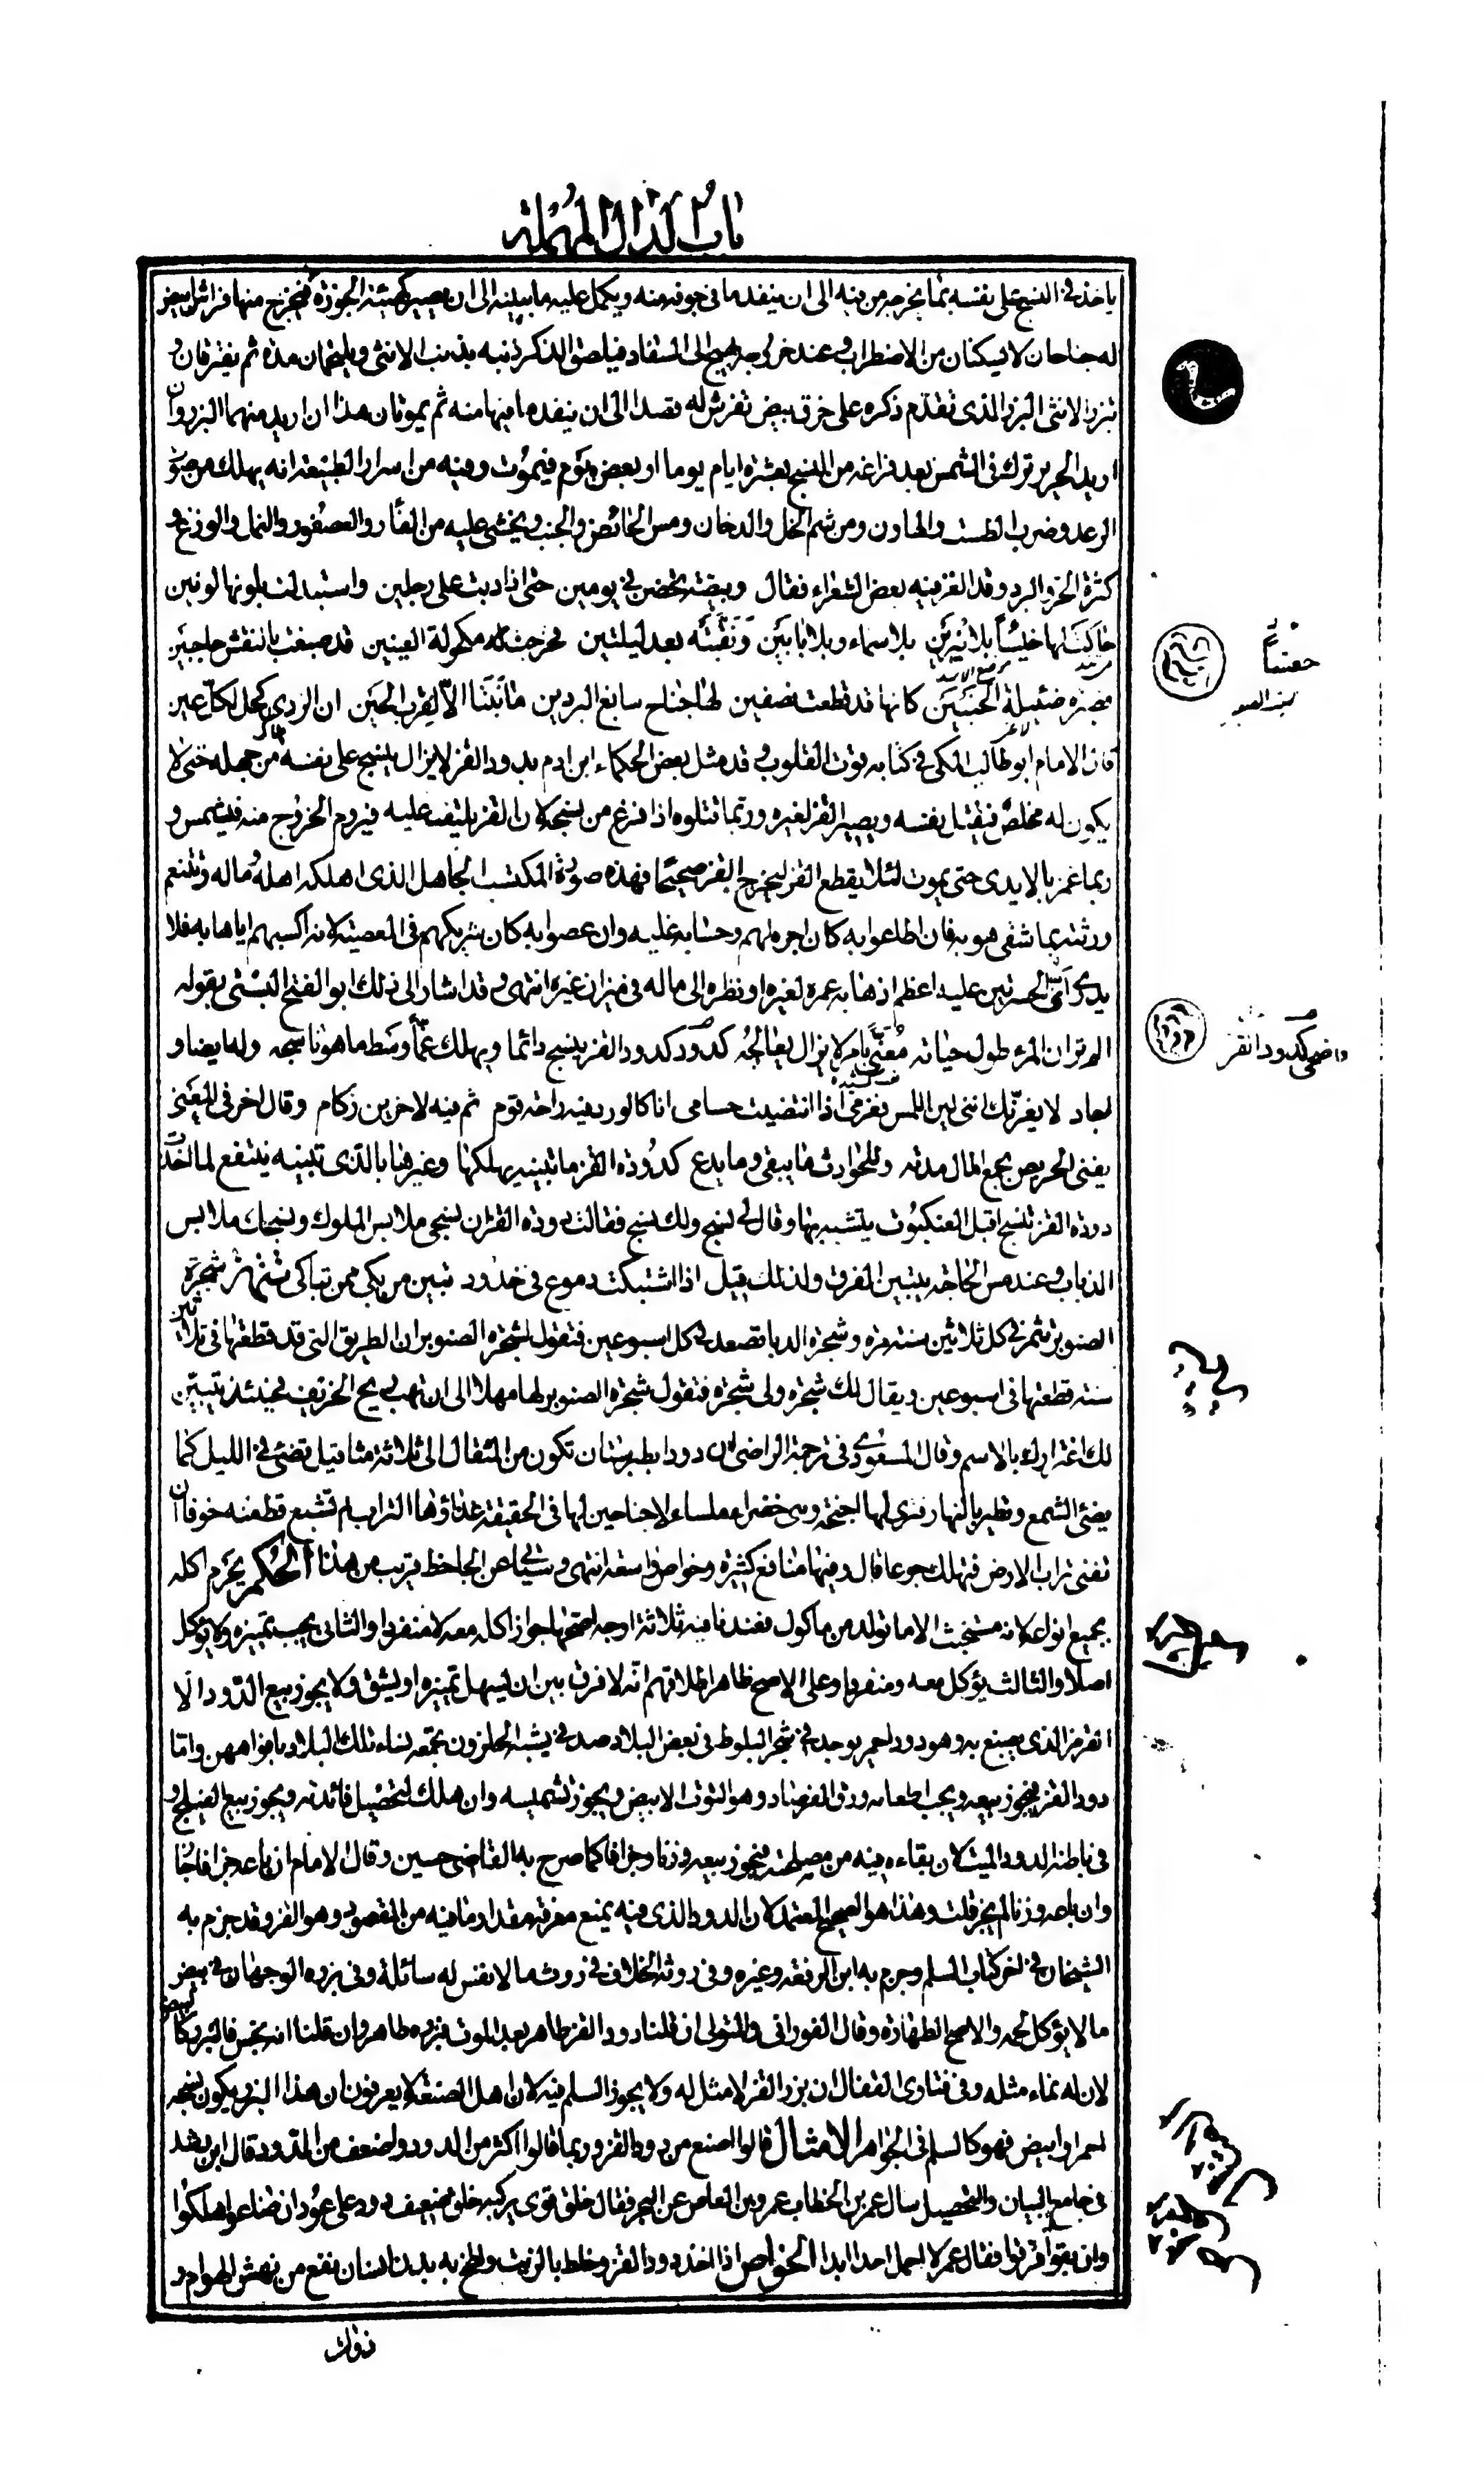 باب الدال المهملة
ياخذ في النسج على نفسه بما يخرجه من فيه الى ان ينفد ما في جوفه منه ويكمل عليه ما يبنيه الى ان يصير كهيئة الجوزة فيخرج منها فراش ابيض
له جناحان لا يسكنان من الاضطراب وعند خروجه يهيج الى السفاد فيلصق الذكر ذنبه بذنب الانثى ويلتحمان مدة ثم يفترقان و
تبزر الانثى البزر الذي تقدم ذكره على خرق بيض تفرش له قصدا الى ان ينفد ما فيها منه ثم يموتان هذا ان اريد منهما البزر وان
اريد الحرير ترك في الشمس بعد فراغه من النسج بعشرة ايام يوما او بعض يوم فيموت وفيه من اسرار الطبيعة انه يهلك من صوت
الرعد وضرب الطست والهاون ومن شم الخل والدخان ومس الحائض والجنب ويخشى عليه من الفأر والعصفور والنمل والوزغ و
كثرة الحر والبرد وقد الغز فيه بعض الشعراء فقال وبيضة تحضن في يومين حتى اذا دبت على رجلين واستبدلت بلونها لونين
حاكت لها خيسا بلا نيرين بلا سماء وبلا بابين ونقبته بعد ليلتين فخرجت مكحولة العينين قد صبغت بالنقش حاجبين
قصيرة ضئيلة الجنبين كانها قد قطعت نصفين لها جناح سابغ البردين ما نبتا الا لقرب الحين ان الردى كحل لكل عين
قال الامام ابو طالب المكي في كتابه قوت القلوب وقد مثل بعض الحكماء ابن ادم بدود القز لا يزال ينسج على نفسه من جهله حتى لا
يكون له مخلص فيقتل نفسه ويصير القز لغيره وربما قتلوه اذا فرغ من نسجه لان القز يلتف عليه فيروم الخروج منه فيشمس و
ربما غمز بالايدي حتى يموت لئلا يقطع القز ليخرج القز صحيحا فهذه صورة المكتسب الجاهل الذي اهلكه اهله وماله وتتنعم
ورثته بما شقي هو به فان اطاعوا به كان اجره لهم وحسابه عليه وان عصوا به كان شريكهم في المعصية لانه اكسبهم اياها به فلا
يدري اي الحسرتين عليه اعظم اذهابه عمره لغيره او نظره الى ماله في ميزان غيره انتهى وقد اشار الى ذلك ابو الفتح البستي بقوله
الم تر ان المرء طول حياته معنى بامر لا يزال يعالجه كدود كدود القز ينسج دائما ويهلك غما وسط ما هو ناسجه وله ايضا و
اجاد لا يغرنك انني لين اللمس فعزمي اذا انتضيت حسامي انا كالورد فيه راحة قوم ثم فيه لاخرين زكام وقال اخر في المعنى
يفنى الحريص بجمع المال مدته وللحوادث ما يبقى وما يدع كدودة القز ما تبنيه يهلكها وغيرها بالذي تبنيه ينتفع لما اخذت
دودة القز تنسج اقبل العنكبوت يتشبه بها وقال لي نسج ولك نسج فقالت دودة القز ان نسجي ملابس الملوك ونسجك ملابس
الذباب وعند مس الحاجة يتبين الفرق ولذلك قيل اذا اشتبكت دموع في خدود تبين من بكى ممن تباكى تتمة شجرة
الصنوبر تثمر في كل ثلاثين سنة مرة وشجرة الدبا تصعد في كل اسبوعين فتقول لشجرة الصنوبر ان الطريق التي قد قطعتها في ثلاثين
سنة قطعتها في اسبوعين ويقال لك شجرة ولي شجرة فتقول شجرة الصنوبر لها مهلا الى ان تهب ريح الخريف فحينئذ يتبين
لك اغترارك بالاسم وقال المسعودي في ترجمة الراضي ان دودا بطبرستان تكون من المثقال الى ثلاثة مثاقيل تضيء في الليل كما
يضيء الشمع وتطير بالنهار فترى لها اجنحة وهي خضراء ملساء لا جناحين لها في الحقيقة غذاؤها التراب لم تشبع قط منه خوفا ان
تفنى تراب الارض فتهلك جوعا قال وفيها منافع كثيرة وخواص واسعة انتهى وسياتي عن الجاحظ قريب من هذا الحكم يحرم اكله
بجميع انواعه لانه مستخبث الا ما تولد من ماكول فعندنا فيه ثلاثة اوجه اصحها جواز اكله معه لا منفردا والثاني يجب تمييزه ولا يؤكل
اصلا والثالث يؤكل معه ومنفردا وعلى الاصح ظاهر اطلاقهم انه لا فرق بين ان يسهل تمييزه او يشق ولا يجوز بيع الدود الا
القرمز الذي يصبغ به وهو دود احمر يوجد في شجر البلوط في بعض البلاد صدفي يشبه الحلزون تجمعه نساء تلك البلاد بافواههن واما
دود القز فيجوز بيعه ويجب اطعامه ورق الفرصاد وهو التوت الابيض ويجوز تشميسه وان هلك لتحصيل فائدته ويجوز بيع الفيلج و
في باطنه الدود الميت لان بقاءه فيه من مصلحته فيجوز بيعه وزنا وجزافا كما صرح به القاضي حسين وقال الامام ان باعه جزافا جاز
وان باعه وزنا لم يجز قلت وهذا هو الصحيح المعتمد لان الدود الذي فيه يمنع معرفة مقدار ما فيه من المقصود وهو القز وقد جزم به
الشيخان في اخر كتاب السلم وجزم به ابن الرفعة وغيره وفي روثه الخلاف في روث ما لا نفس له سائلة وفي بزره الوجهان في بيض
ما لا يؤكل لحمه والاصح الطهارة وقال الفوراني والمتولي ان قلنا دود القز طاهر بعد الموت فبزره طاهر وان قلنا انه نجس فالبزر كالبيض
لان له نماء مثله وفي فتاوى القفال ان بزر القز لا مثل له ولا يجوز السلم فيه لان اهل الصنعة لا يعرفون ان هذا البزر يكون نسجه
احمر او ابيض فهو كالسلم في الجواهر الامثال قالوا اصنع من دود القز وربما قالوا اكثر من الدود واضعف من الدود قال ابن رشد
في جامع البيان والتحصيل سال عمر بن الخطاب عمرو بن العاص عن البحر فقال خلق قوي يركبه خلق ضعيف دود على عود ان ضاعوا هلكوا
وان بقوا فرقوا فقال عمر لا احمل احدا ابدا الخواص اذا اخذ دود القز وخلط بالزيت ولطخ به بدن انسان نفع من نهش الهوام و
ذوات
واضحى كدود القز